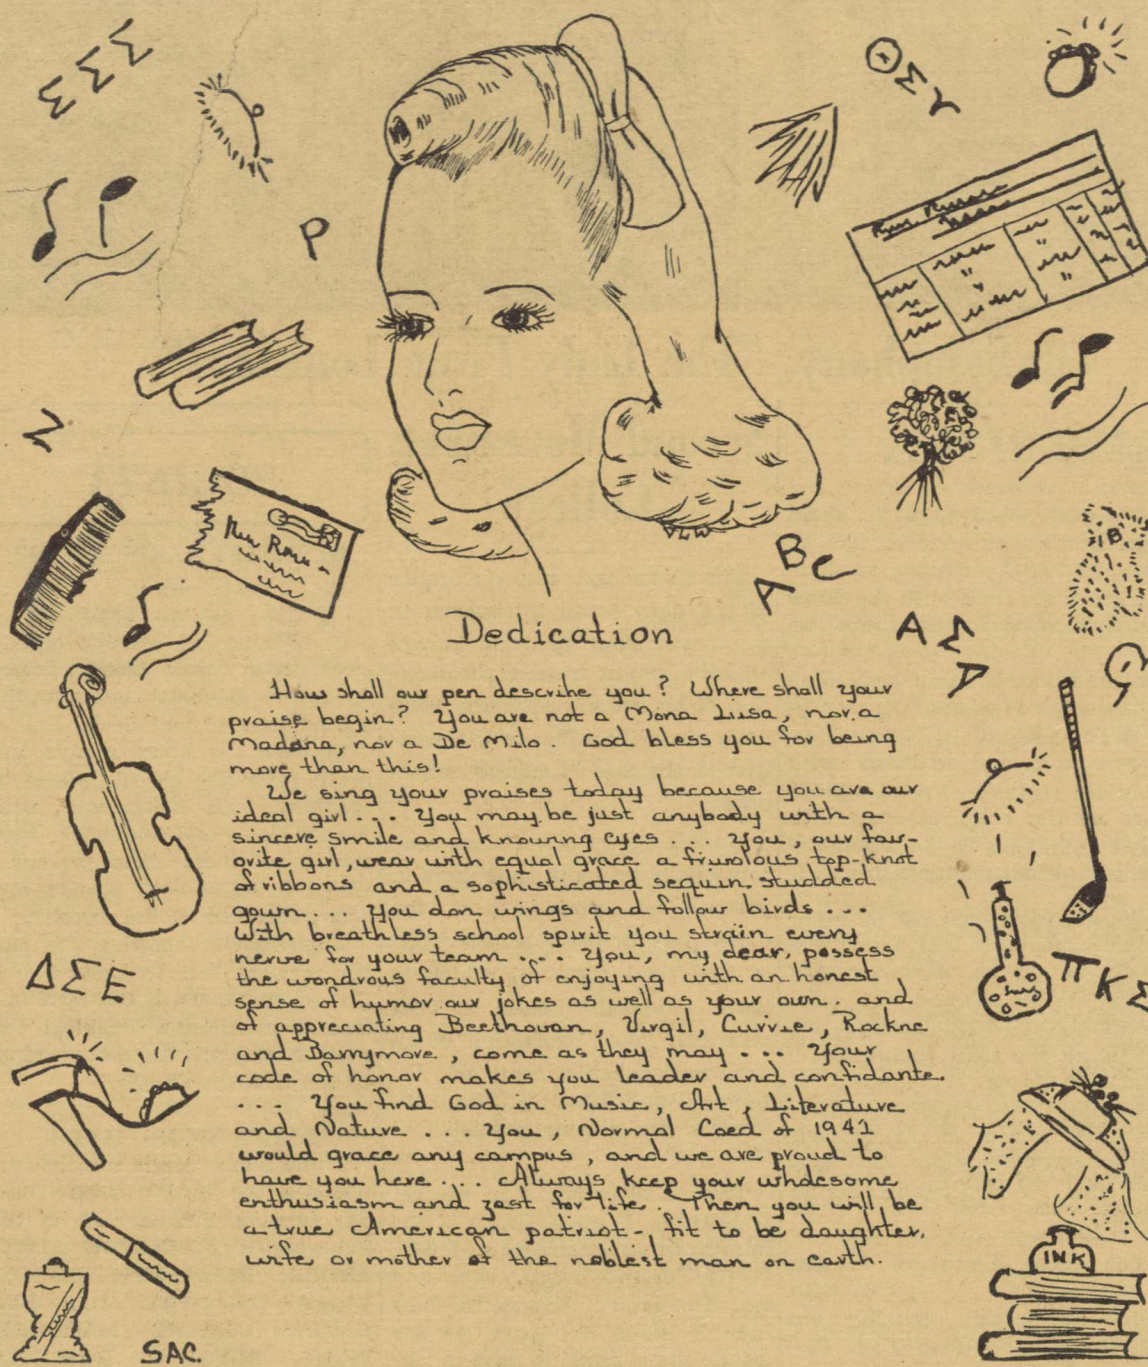 ΣΣΣ
ΘΣΥ
P
N
B
ABC
ΑΣΑ
Dedication
How shall our pen describe you? Where shall your
praise begin? You are not a Mona Liisa, nor a
Madona, nor a De Milo. God bless you for being
more than this!
We sing your praises today because you are our
ideal girl... You may be just anybody with a
sincere smile and knowing eyes... You, our fav-
orite girl, wear with equal grace a frivolous top-knot
of ribbons and a sophisticated sequin studded
gown... You don wings and follow birds...
With breathless school spirit you strain every
nerve for your team... You, my dear, possess
the wondrous faculty of enjoying with an honest
sense of humor our jokes as well as your own. and
of appreciating Beethovan, Virgil, Currie, Rockne
and Barrymore, come as they may... Your
code of honor makes you leader and confidante.
... You find God in Music, Art, Literature
and Nature... You, Normal Coed of 1941
would grace any campus, and we are proud to
have you here... Always keep your wholesome
enthusiasm and zest for life. Then you will be
a true American patriot-, fit to be daughter,
wife or mother of the noblest man on earth.
ΔΣΕ
ΠΚΣ
INK
SAC.